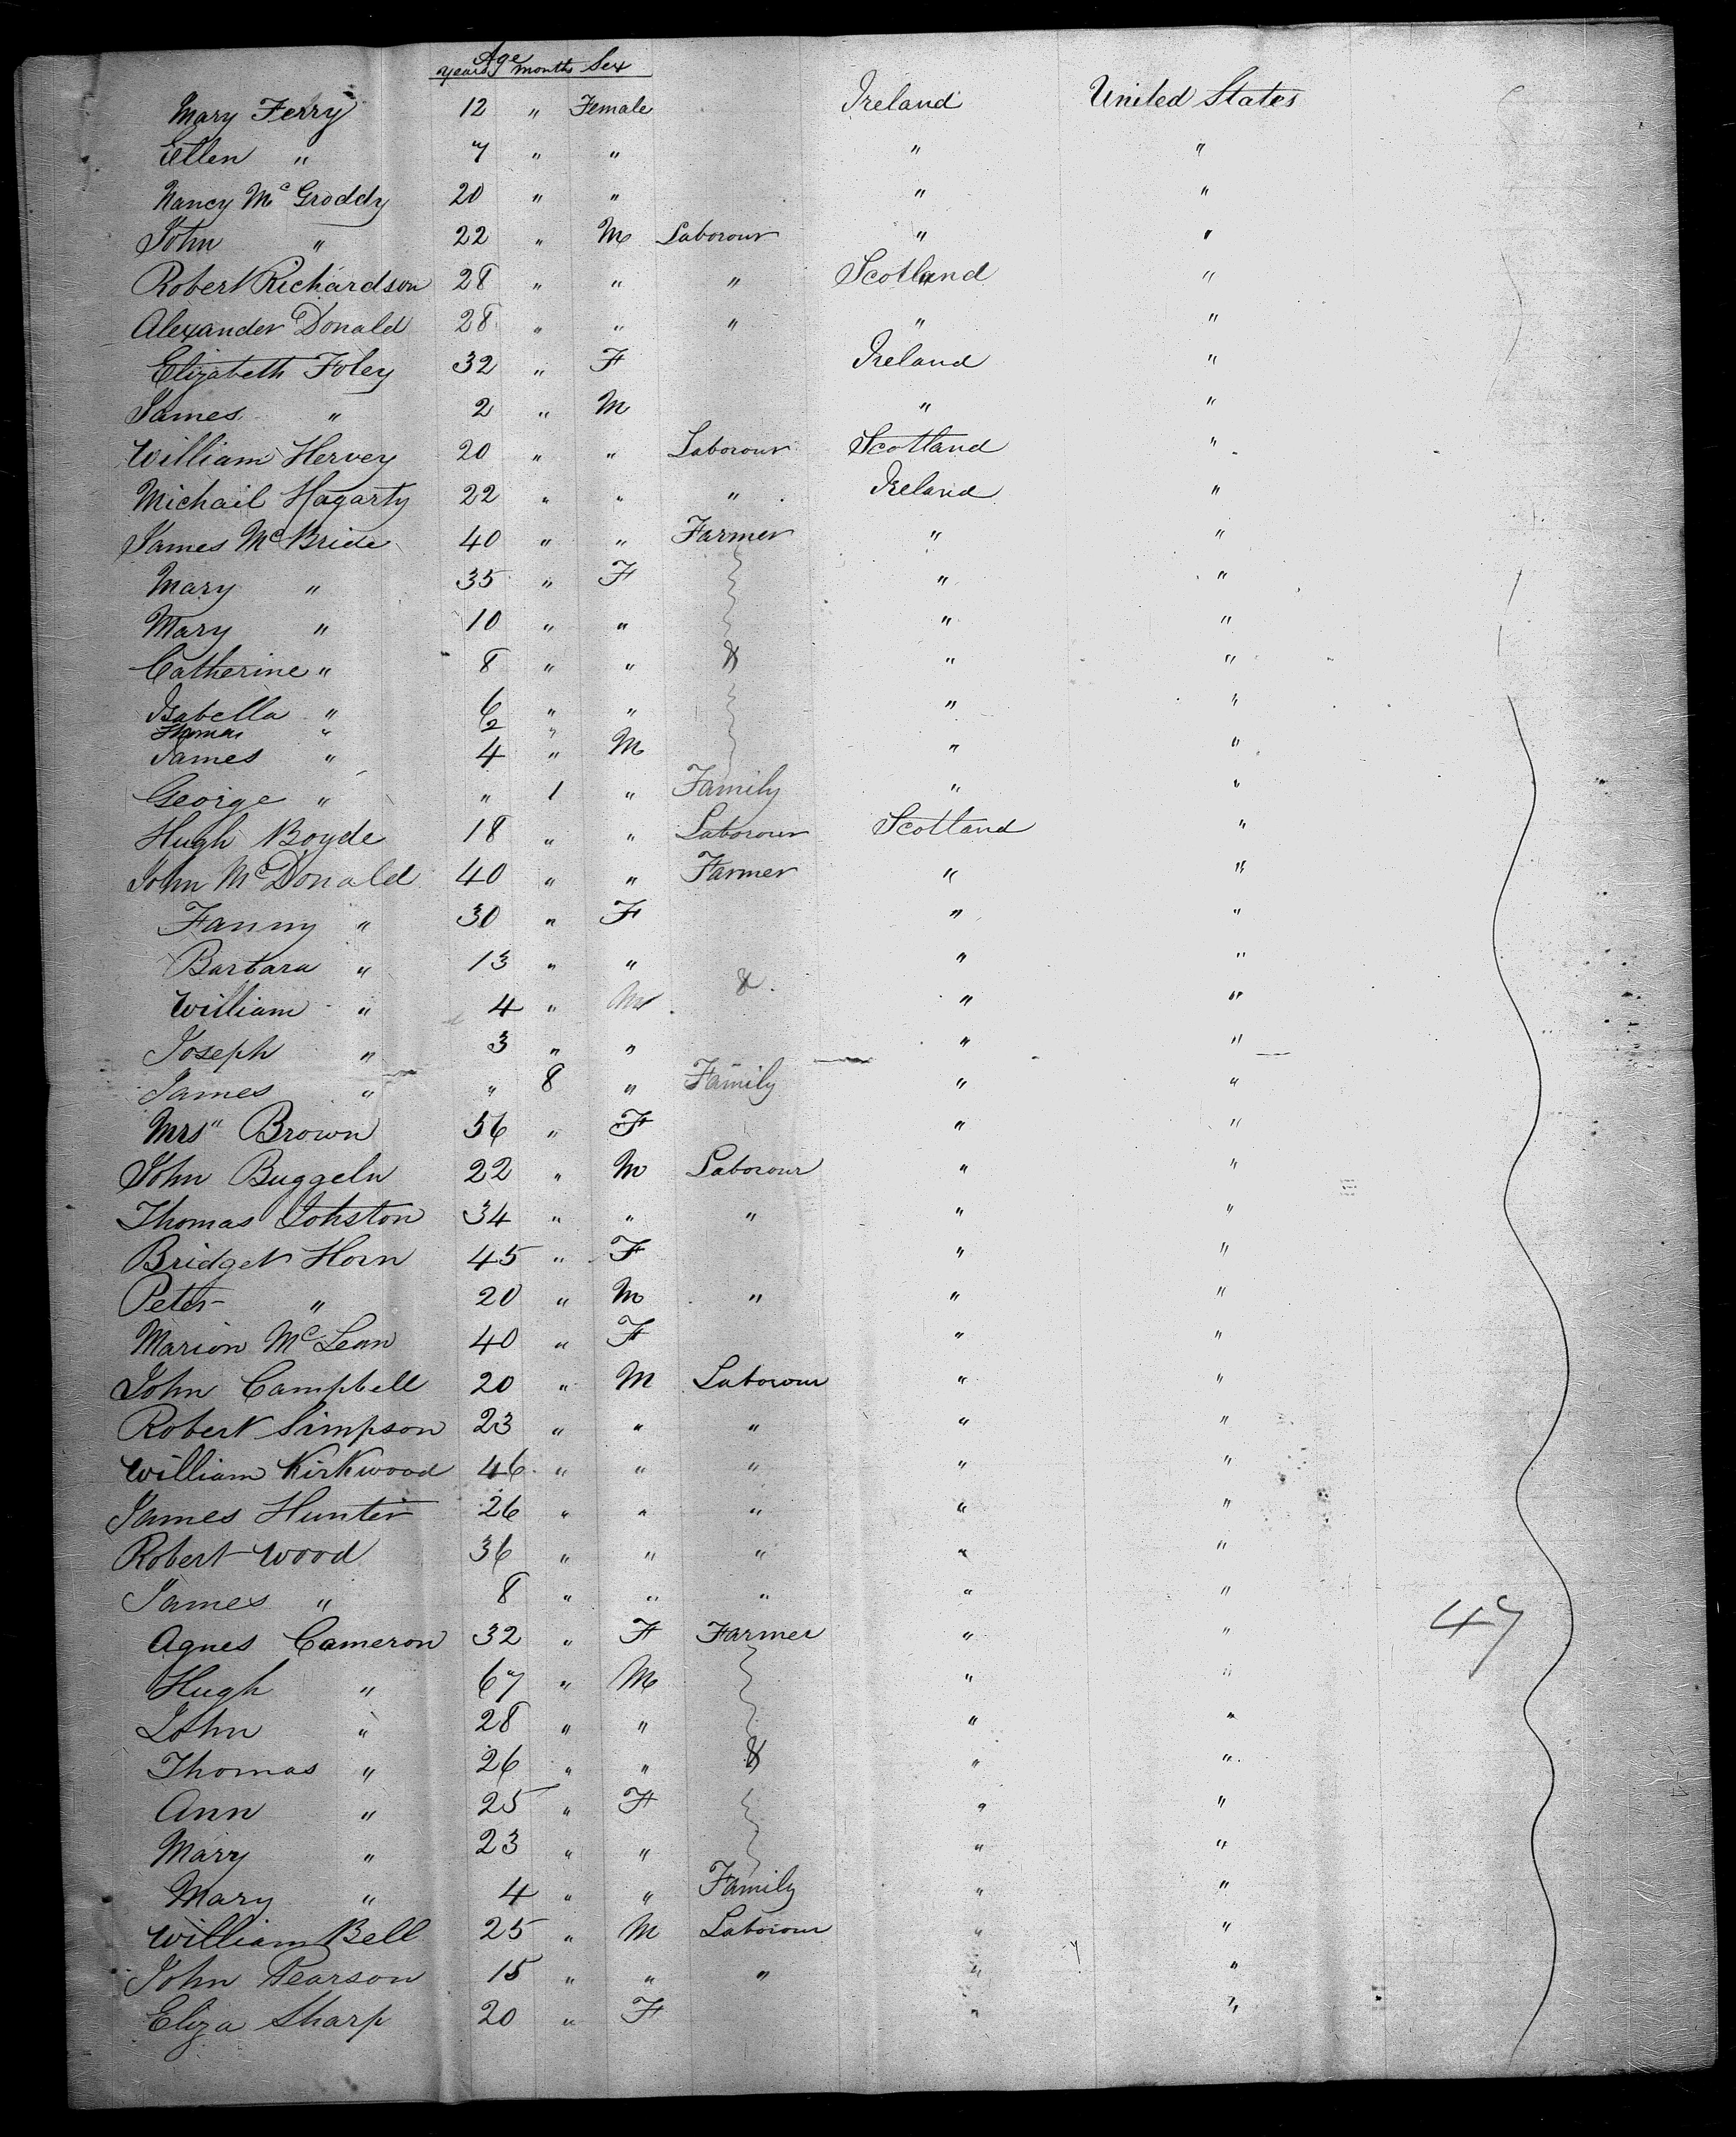 Age
years months Sex
Mary Ferry 12 " Female Ireland United States
Ellen " 7 " " " "
Nancy Mc Groddy 20 " " " "
John " 22 " M Laborour " "
Robert Richardson 28 " " " Scotland "
Alexander Donald 28 " " " " "
Elizabeth Foley 32 " F Ireland "
James " 2 " M " "
William Hervey 20 " " Laborour Scotland "
Michail Hagarty 22 " " " Ireland "
James McBride 40 " " Farmer " "
Mary " 35 " F " "
Mary " 10 " " " "
Catherine " 8 " " & " "
Isabella " 6 " " " "
Thomas " 2 "
James " 4 " M " "
George " " 1 " Family " "
Hugh Boyde 18 " " Laborour Scotland "
John McDonald 40 " " Farmer " "
Fanny " 30 " F " "
Barbara " 13 " " " "
William " 4 " M & " "
Joseph " 3 " " " "
James " " 8 " Family " "
Mrs" Brown 56 " F " "
John Buggeln 22 " M Laborour " "
Thomas Johston 34 " " " " "
Bridget Horn 45 " F " "
Peter " 20 " M " " "
Marion Mc Lean 40 " F " "
John Campbell 20 " M Laborour " "
Robert Simpson 23 " " " " "
William Kirkwood 46 " " " " "
James Hunter 26 " " " " "
Robert Wood 36 " " " " "
James " 8 " " " " "
Agnes Cameron 32 " F Farmer " " 47
Hugh " 67 " M " "
John " 28 " " " "
Thomas " 26 " " & " "
Ann " 25 " F " "
Mary " 23 " " " "
Mary " 4 " " Family " "
William Bell 25 " M Laborour " "
John Pearson 15 " " " " "
Eliza Sharp 20 " F " "